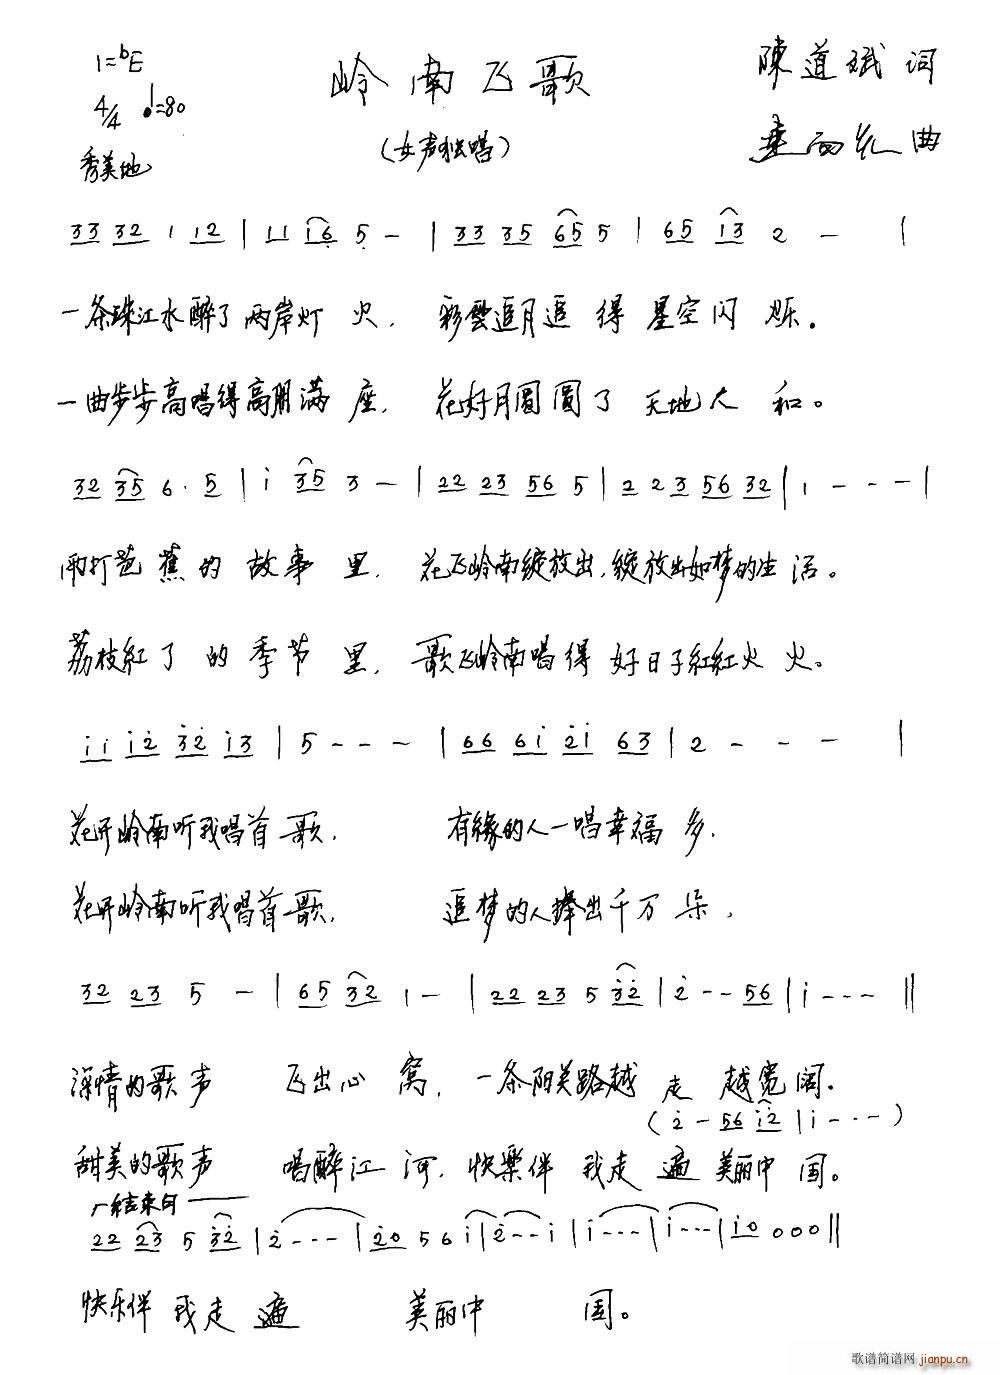 1=bE
岭南飞歌
陳道斌 词
4/4 ♩=80
(女声独唱)
曲
秀美地
33 32 1 12 | 11 i6 5 - | 33 35 65 5 | 65 13 2 - |
一条珠江水醉了两岸灯火, 彩雲追月追得星空闪烁.
一曲步步高唱得高朋满座, 花好月圓圓了天地人和。
32 35 6. 5 | i 35 3 - | 22 23 56 5 | 2 23 56 32 | 1 - - - |
雨打芭蕉的故事里, 花飞岭南绽放出,绽放出如梦的生活。
荔枝紅了的季节里, 歌飞岭南唱得好日子紅紅火火。
ii i2 32 i3 | 5 - - - | 66 6i 2i 63 | 2 - - - |
花开岭南听我唱首歌, 有緣的人一唱幸福多,
花开岭南听我唱首歌, 追梦的人捧出千万朵,
32 23 5 - | 65 32 1 - | 22 23 5 32 | 2 - - 56 | i - - - ||
深情的歌声 飞出心窝, 一条阳关路越走越宽阔.
(2 - 56 i2 | i - - -)
甜美的歌声 唱醉江河, 快樂伴我走遍美丽中国。
结束句
22 23 5 32 | 2 - - - | 20 5 6 i | 2 - - i | i - - - | i - - - | i0 0 0 0 ||
快乐伴我走遍 美丽中国。
歌谱简谱网 jianpu.cn